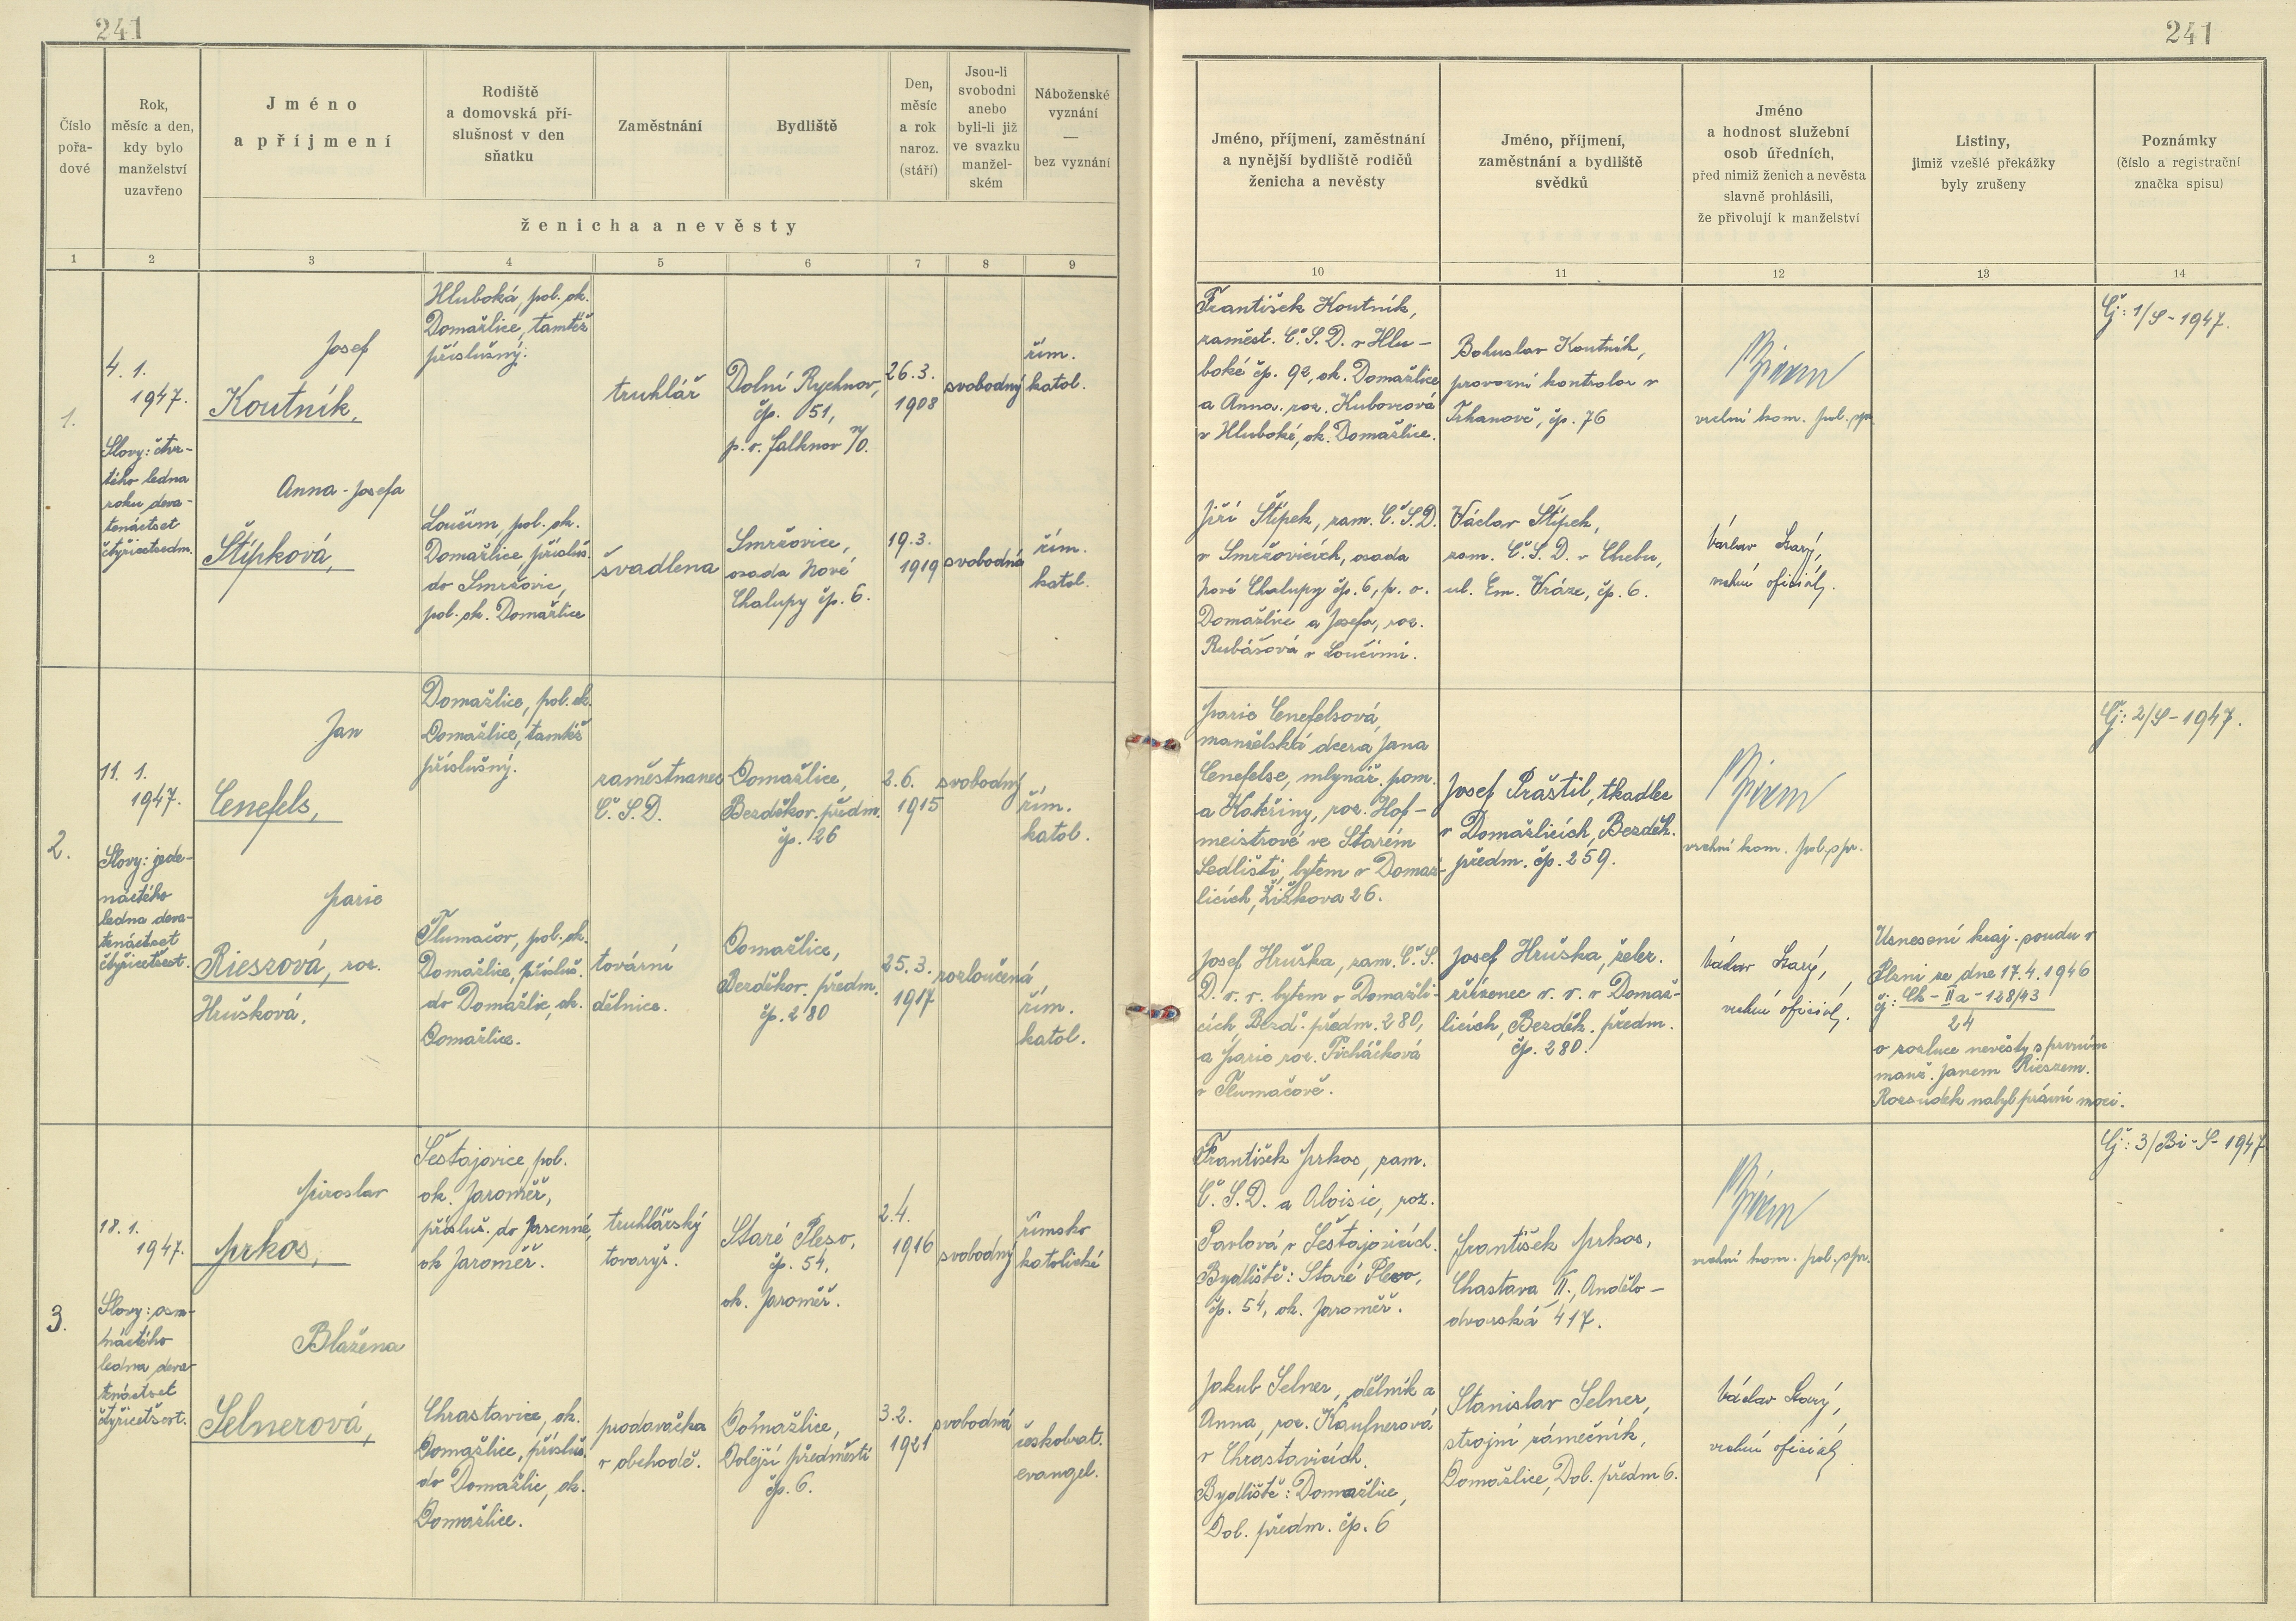 241
241
Číslo
pořa-
dové
Rok,
měsíc a den,
kdy bylo
manželství
uzavřeno
Jméno
a příjmení
Rodiště
a domovská pří-
slušnost v den
sňatku
Zaměstnání
Bydliště
Den,
měsíc
a rok
naroz.
(stáří)
Jsou-li
svobodni
anebo
byli-li již
ve svazku
manžel-
ském
Náboženské
vyznání
—
bez vyznání
ženicha a nevěsty
Jméno, příjmení, zaměstnání
a nynější bydliště rodičů
ženicha a nevěsty
Jméno, příjmení,
zaměstnání a bydliště
svědků
Jméno
a hodnost služební
osob úředních,
před nimiž ženich a nevěsta
slavně prohlásili,
že přivolují k manželství
Listiny,
jimiž vzešlé překážky
byly zrušeny
Poznámky
(číslo a registrační
značka spisu)
1 2 3 4 5 6 7 8 9 10 11 12 13 14
1.
4. 1.
1947.
Slovy: čtvr-
tého ledna
roku deva-
tenáctset
čtyřicetsedm.
Josef
Koutník,
Hluboká, pol. ok.
Domažlice, tamtéž
příslušný.
truhlář
Dolní Rychnov,
čp. 51,
p. v. Falknov n/O.
26. 3.
1908
svobodný
řím.
katol.
František Koutník,
zaměst. Č.S.D. v Hlu-
boké čp. 92, ok. Domažlice
a Anna roz. Kubovcová
v Hluboké, ok. Domažlice.
Bohuslav Koutník,
provozní kontrolor v
Trhanově, čp. 76
vrchní kom. pol. spr.
Čj: 1/S-1947.
Anna-Josefa
Štípková,
Loučim, pol. ok.
Domažlice, přísluš.
do Smržovic,
pol. ok. Domažlice
švadlena
Smržovice,
osada Nové
Chalupy čp. 6.
19. 3.
1919
svobodná
řím.
katol.
Jiří Štípek, zam. Č.S.D.
v Smržovicích, osada
Nové Chalupy čp. 6, p. o.
Domažlice a Josefa, roz.
Rubášová v Loučimi.
Václav Štípek,
zam. Č.S.D. v Chebu,
ul. Em. Vráze, čp. 6.
Václav Starý,
vrchní oficiál.
2.
11. 1.
1947.
Slovy: jede-
náctého
ledna deva-
tenáctset
čtyřicetšest.
Jan
Cenefels,
Domažlice, pol. ok.
Domažlice, tamtéž
příslušný.
zaměstnanec
Č.S.D.
Domažlice,
Bezděkov. předm.
čp. 26
2. 6.
1915
svobodný
řím.
katol.
Marie Cenefelsová,
manželská dcera Jana
Cenefelse, mlynář. pom.
a Kateřiny, roz. Hof-
meistrové ve Starém
Sedlišti, bytem v Domaž-
licích, Žižkova 26.
Josef Praštil, tkadlec
v Domažlicích, Bezděk.
předm. čp. 259.
vrchní kom. pol. spr.
Čj: 2/S-1947.
Marie
Rieszová, roz.
Hrušková,
Tlumačov, pol. ok.
Domažlice, přísluš.
do Domažlic, ok.
Domažlice.
tovární
dělnice.
Domažlice,
Bezděkov. předm.
čp. 280
25. 3.
1917
rozloučená
řím.
katol.
Josef Hruška, zam. Č.S.
D. v. v. bytem v Domažli-
cích, Bezd. předm. 280,
a Marie roz. Ticháčková
v Tlumačově.
Josef Hruška, želez.
zřízenec v. v. v Domaž-
licích, Bezděk. předm.
čp. 280.
Václav Starý,
vrchní oficiál.
Usnesení kraj. soudu v
Plzni ze dne 17. 4. 1946
čj: Ck-IIa-128/43
24
o rozluce nevěsty s prvním
manž. Janem Rieszem.
Rozsudek nabyl právní moci.
3.
18. 1.
1947.
Slovy: osm-
náctého
ledna deva-
tenáctset
čtyřicetšest.
Miroslav
Mrkos,
Šestajovice, pol.
ok. Jaroměř,
přísluš. do Jasenné,
ok Jaroměř.
truhlářský
tovaryš.
Staré Pleso,
čp. 54,
ok. Jaroměř.
2. 4.
1916
svobodný
římsko
katolické
František Mrkos, zam.
Č.S.D. a Aloisie, roz.
Pavlová v Šestajovicích.
Bydliště: Staré Pleso,
čp. 54, ok. Jaroměř.
František Mrkos,
Chastava II., Andělo-
dvorská 417.
vrchní kom. pol. spr.
Čj: 3/Bi-S-1947
Blažena
Selnerová,
Chrastavice, ok.
Domažlice, přísluš.
do Domažlic, ok.
Domažlice.
prodavačka
v obchodě.
Domažlice,
Dolejší předměstí
čp. 6.
3. 2.
1921
svobodná
českobrat.
evangel.
Jakub Selner, dělník a
Anna, roz. Kaufnerová
v Chrastavicích.
Bydliště: Domažlice,
Dol. předm. čp. 6
Stanislav Selner,
strojní zámečník,
Domažlice, Dol. předm 6.
Václav Starý,
vrchní oficiál.